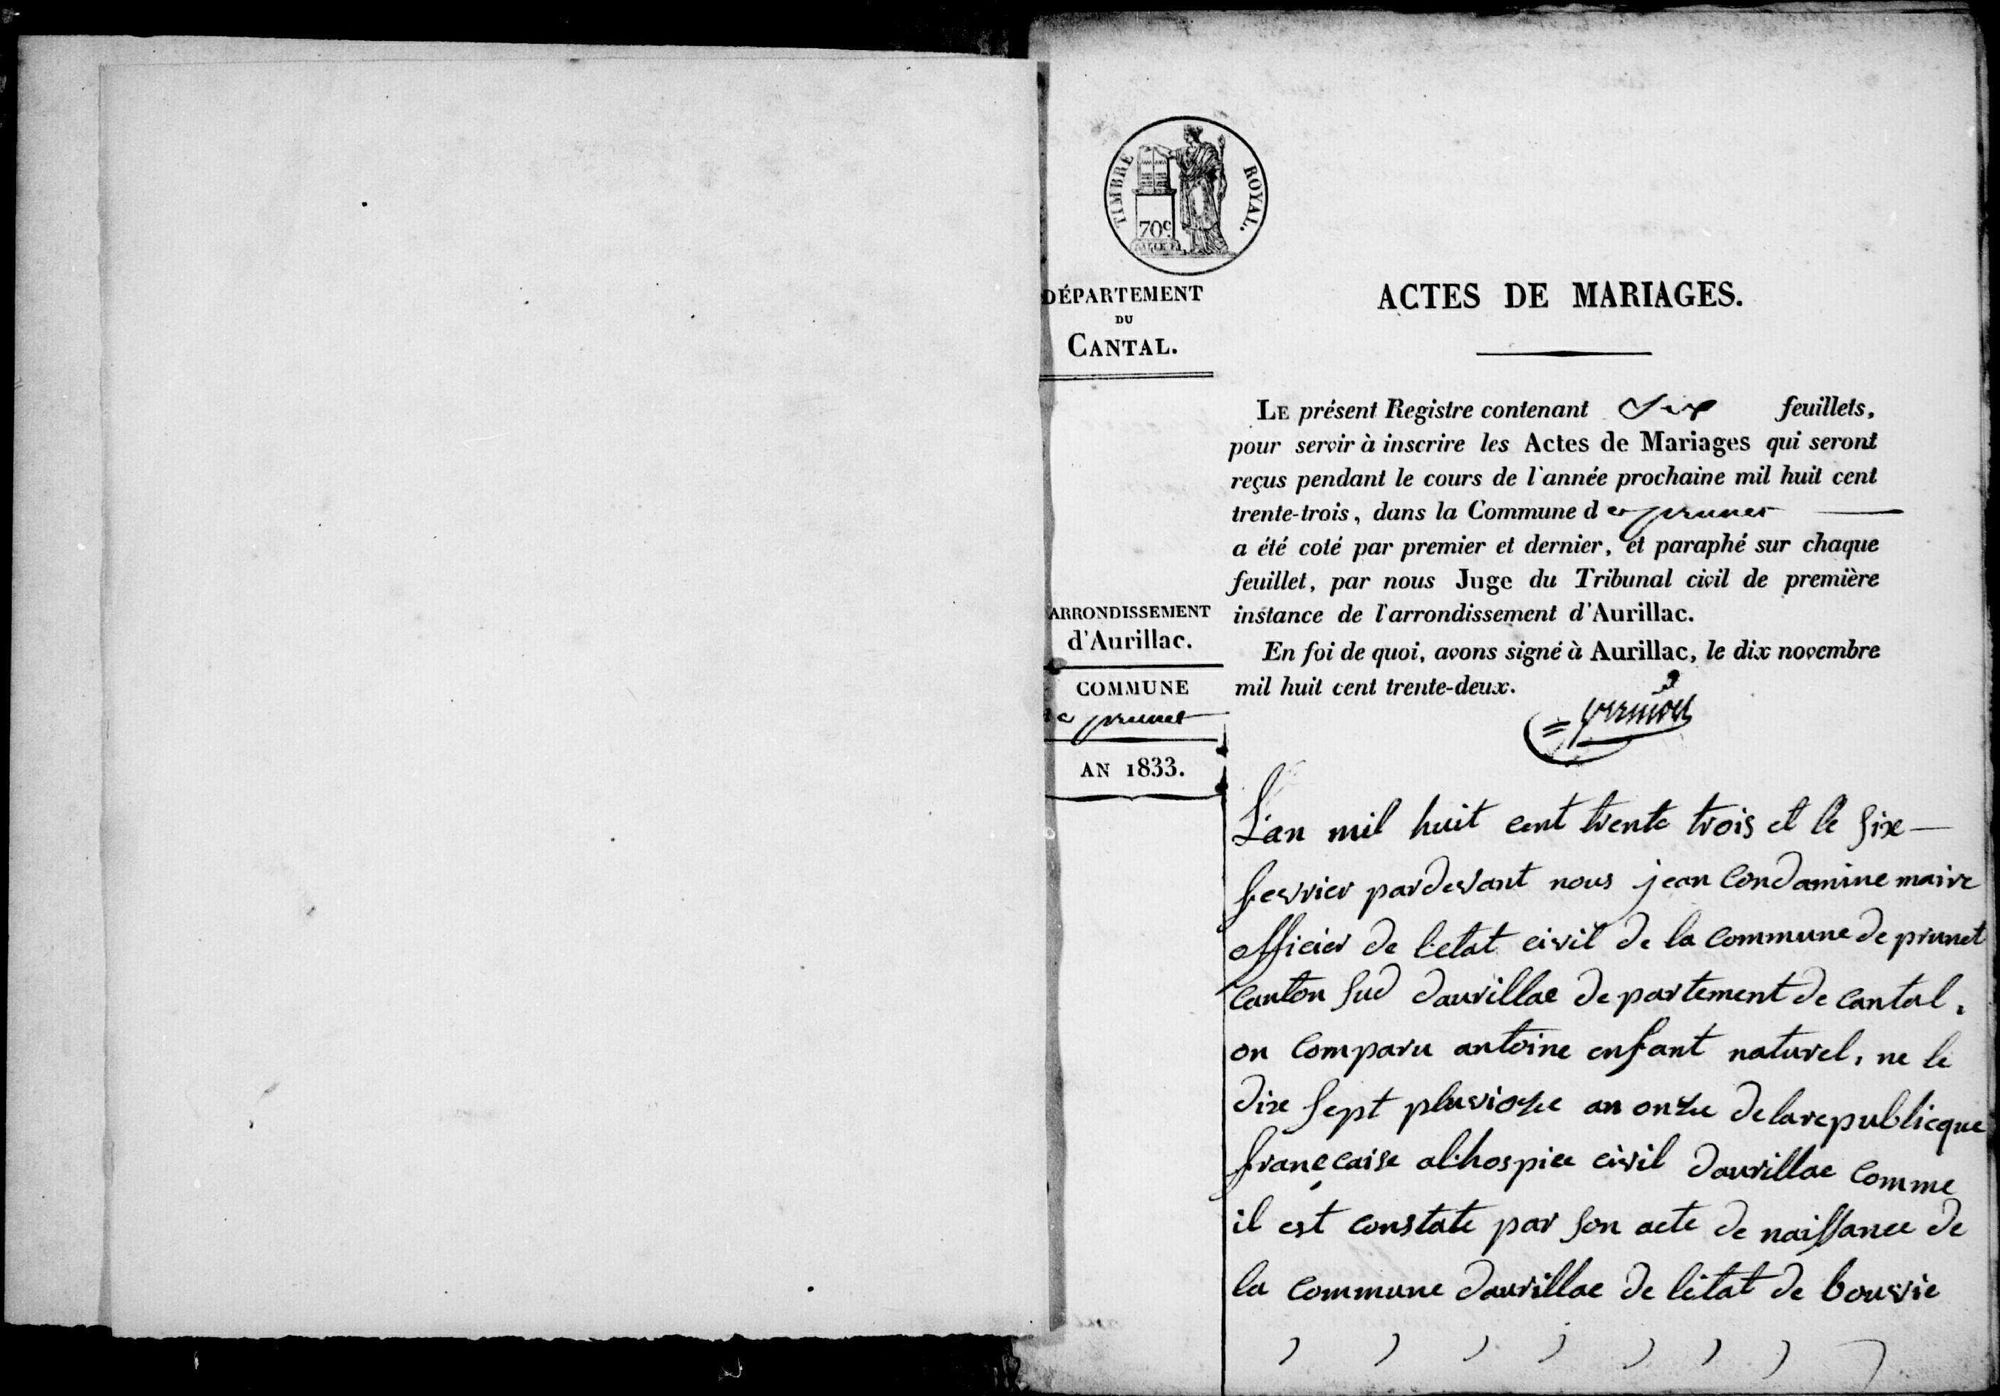 TIMBRE ROYAL.
70c
DÉPARTEMENT
DU
CANTAL.
ARRONDISSEMENT
d'Aurillac.
COMMUNE
de prunet
AN 1833.
ACTES DE MARIAGES.
LE présent Registre contenant Six feuillets,
pour servir à inscrire les Actes de Mariages qui seront
reçus pendant le cours de l'année prochaine mil huit cent
trente-trois, dans la Commune de prunet
a été coté par premier et dernier, et paraphé sur chaque
feuillet, par nous Juge du Tribunal civil de première
instance de l'arrondissement d'Aurillac.
En foi de quoi, avons signé à Aurillac, le dix novembre
mil huit cent trente-deux.
L'an mil huit cent trente trois et le six
fevrier pardevant nous jean Condamine maire
officier de letat civil de la commune de prunet
Canton sud daurillac departement de cantal,
on comparu antoine enfant naturel, ne le
dix sept pluvioze an onze de la republicque
françcaise al'hospice civil daurillac comme
il est constate par son acte de naissance de
la commune daurillac de letat de bouvie